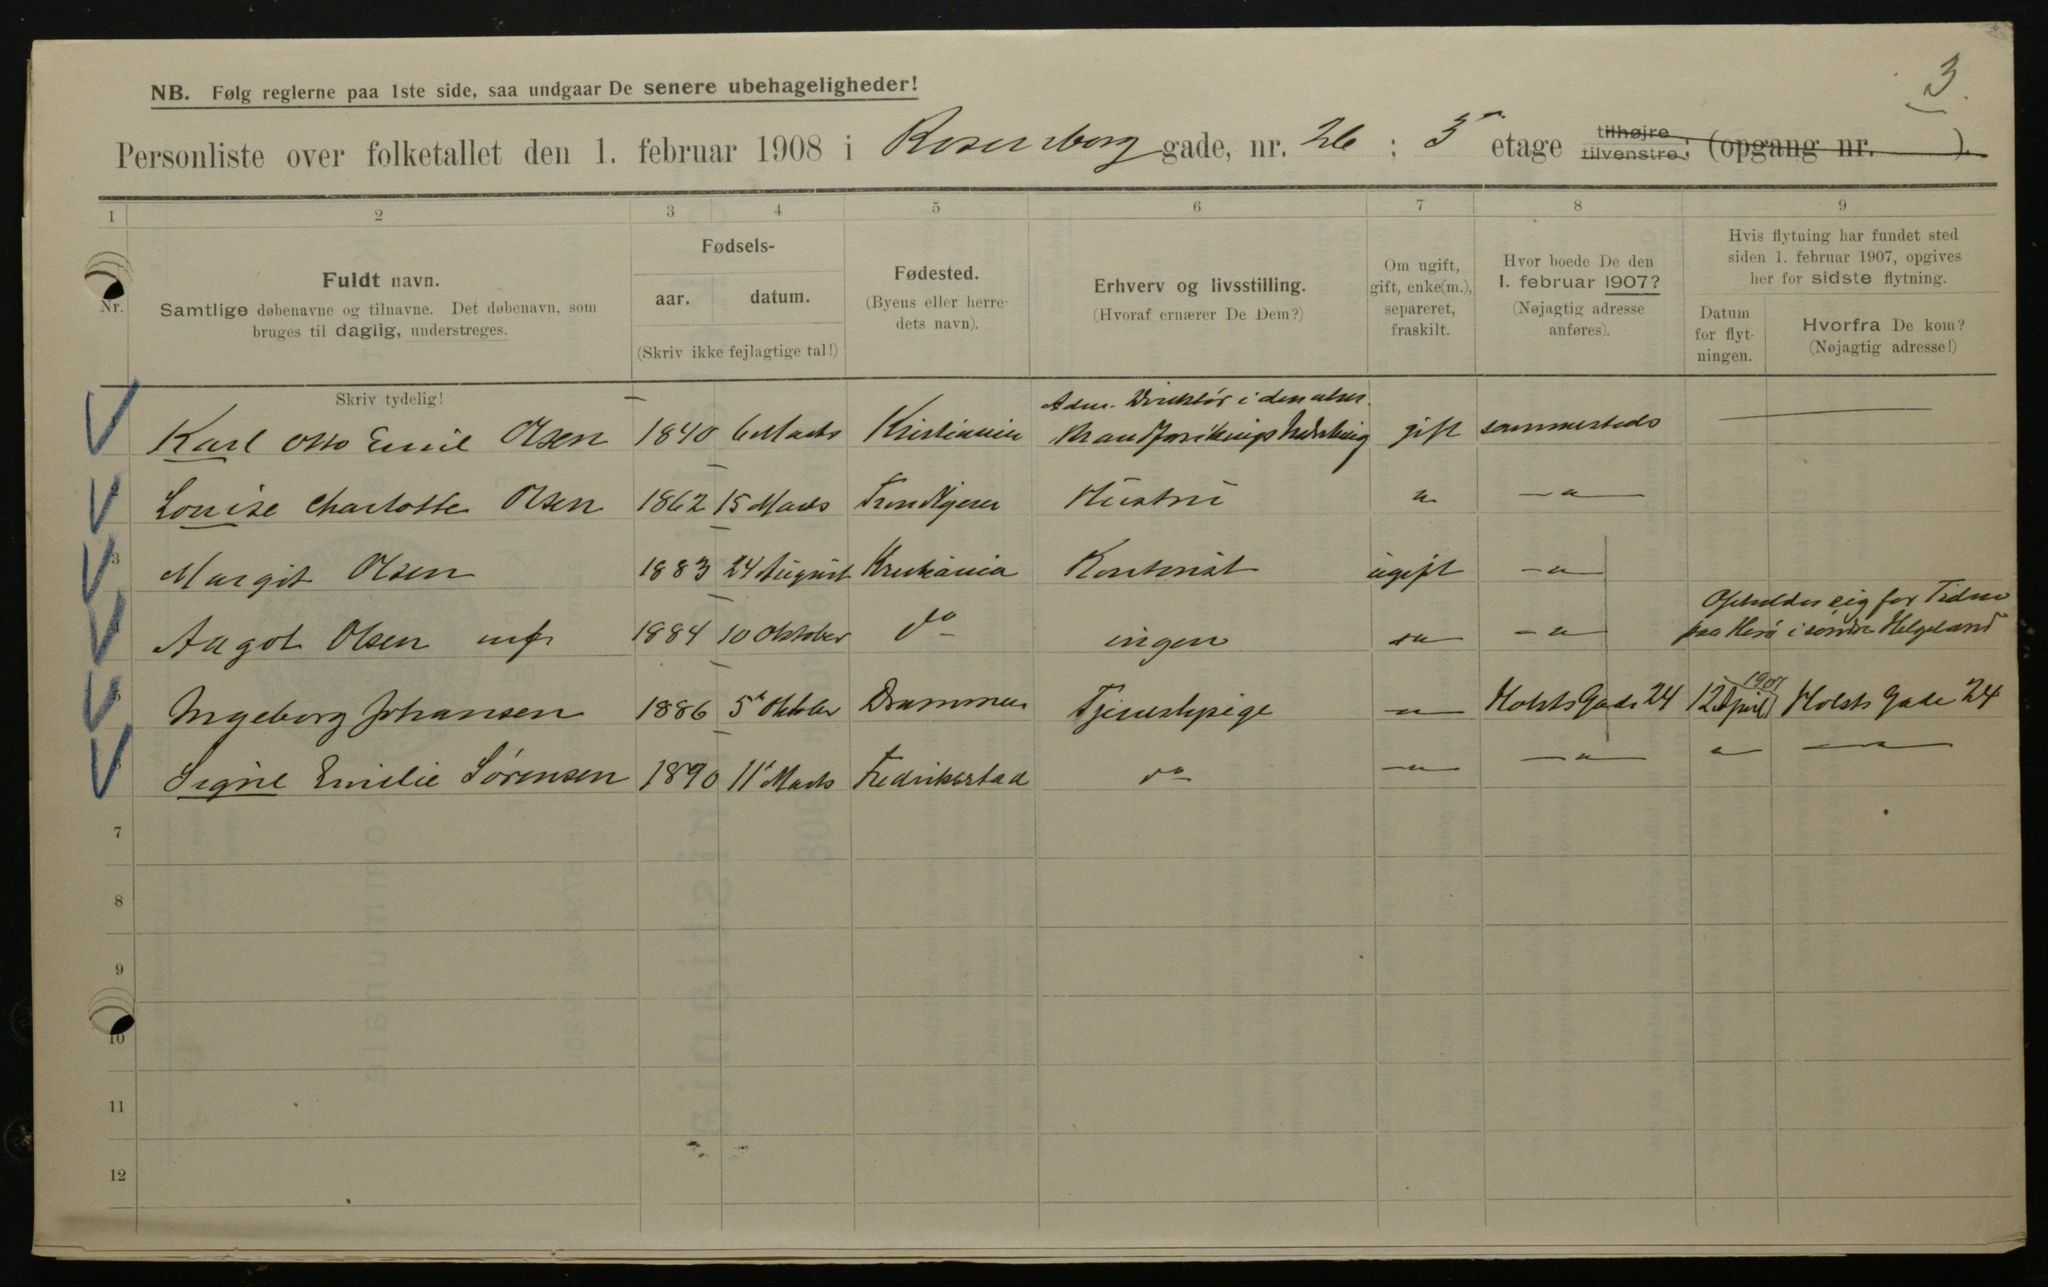 3
NB. Følg reglerne paa 1ste side, saa undgaar De senere ubehageligheder!
Personliste over folketallet den 1. februar 1908 i Rosenborg gade, nr. 26 ; 3 etage tilhøjre tilvenstre; (opgang nr. ).
1 2 3 4 5 6 7 8 9
Nr.
Fuldt navn.
Samtlige døbenavne og tilnavne. Det døbenavn, som
bruges til daglig, understreges.
Skriv tydelig!
Fødsels-
aar. datum.
(Skriv ikke fejlagtige tal!)
Fødested.
(Byens eller herre-
dets navn).
Erhverv og livsstilling.
(Hvoraf ernærer De Dem?)
Om ugift,
gift, enke(m.),
separeret,
fraskilt.
Hvor boede De den
1. februar 1907?
(Nøjagtig adresse
anføres).
Hvis flytning har fundet sted
siden 1. februar 1907, opgives
her for sidste flytning.
Datum
for flyt-
ningen.
Hvorfra De kom?
(Nøjagtig adresse!)
Adm. Direktör i den
Karl Otto Emil Olsen 1840 6 Marts Kristiania gift sammesteds
Louise Charlotte Olsen 1862 15 Marts Trondhjem Hustru " — " —
3 Margit Olsen 1883 24 August Kristiania Kontorist ugift — " —
Opholder sig for Tiden
Aagot Olsen 1884 10 Oktober do ingen — " — — " — paa Herö i söndre Helgeland
1907
5 Ingeborg Johansen 1886 5 Oktober Drammen Tjenestepige — " — Holsts Gade 24 12 April Holsts Gade 24
Signe Emilie Sörensen 1890 11 Marts Fredrikstad do — " — — " — " — " —
7
8
9
10
11
12